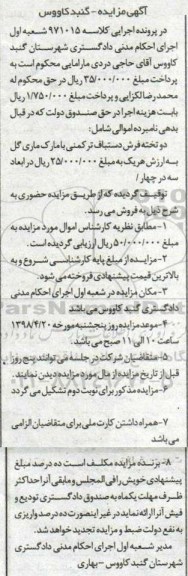 آگهی مزایده - گنبدکاووس
در پرونده اجرایی کلاسه ۹۷۱۰۱۵ شعبه اول
اجرای احکام مدنی دادگستری شهرستان گنبد
کاووس آقای حاجی دردی مارامایی محکوم است به
پرداخت مبلغ ۳۵/۰۰۰/۰۰۰ ریال در حق محکوم له
محمدرضا لکزایی و پرداخت مبلغ ۱/۷۵۰/۰۰۰ ریال
بابت هزینه اجرا در حق صندوق دولت که در قبال
بدهی نامبرده اموالی شامل:
دو تخته فرش دستباف ترکمنی با مارک ماری گل
به ارزش هریک به مبلغ ۲۵/۰۰۰/۰۰۰ ریال در ابعاد
سه در چهار/
توقیف گردیده که از طریق مزایده حضوری به
شرح ذیل به فروش می رسد.
۱- مطابق نظریه کارشناس اموال مورد مزایده به
مبلغ ۵۰/۰۰۰/۰۰۰ ریال ارزیابی گردیده است.
۲- مزایده از مبلغ پایه کارشناسی شروع و به
بالاترین قیمت پیشنهادی فروخته می شود.
۳- مکان مزایده در شعبه اول اجرای احکام مدنی
دادگستری گنبد کاووس می باشد
۴- موعد مزایده روز پنجشنبه مورخه ۱۳۹۸/۴/۲۰
ساعت ۱۰ الی ۱۱ صبح می باشد.
۵- متقاضیان شرکت در جلسه می توانند پنج روز
قبل از تاریخ مزایده از مال مورد مزایده دیدن نمایند.
۶- مزایده مذکور برای نوبت دوم تشکیل می گردد
۷- همراه داشتن کارت ملی برای متقاضیان الزامی
می باشد
۸- برنده مزایده مکلف است ده درصد مبلغ
پیشنهادی خویش را فی المجلس و مابقی آنرا حداکثر
ظرف مهلت یکماه به صندوق دادگستری تودیع و
فیش آنرا ارائه نماید در غیر اینصورت ده درصد واریزی
به نفع دولت ضبط و مزایده تجدید خواهد شد.
مدیر شعبه اول اجرای احکام مدنی دادگستری
شهرستان گنبد کاووس - بهاری